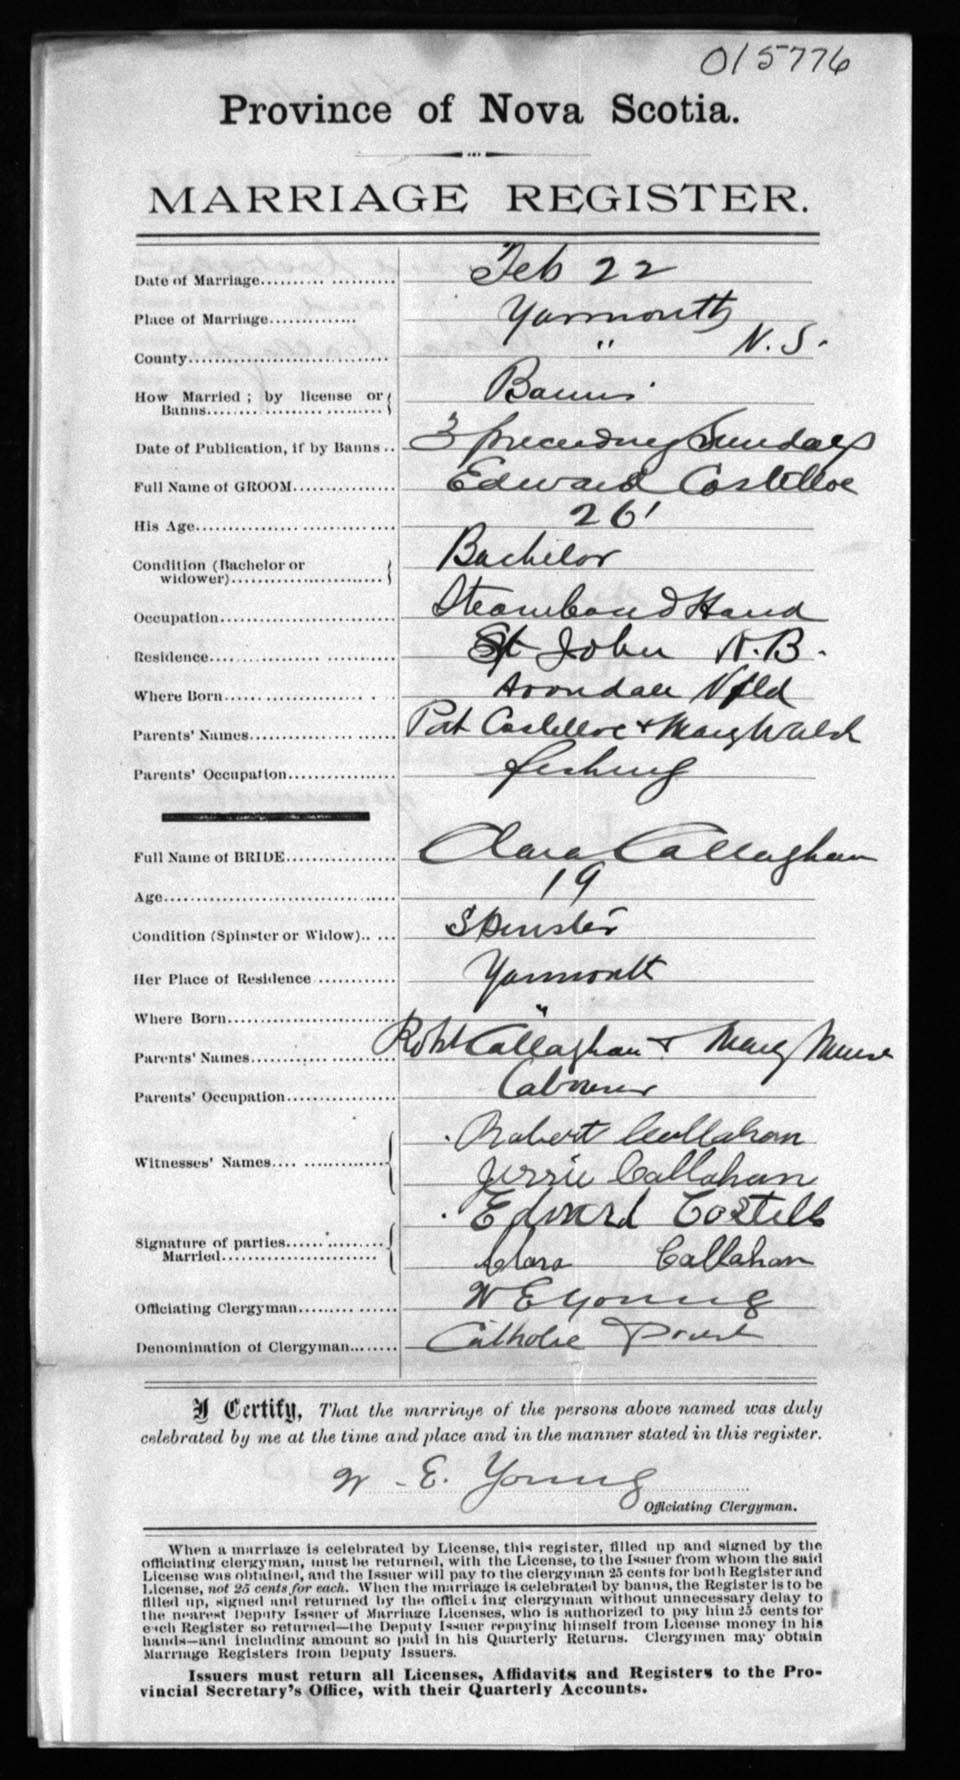 015776
Province of Nova Scotia.
MARRIAGE REGISTER.
Date of Marriage.................... Feb 22
Place of Marriage.............. Yarmouth
County................................ " N. S.
How Married ; by license or
Banns............................ Banns
Date of Publication, if by Banns.. 3 preceding Sundays
Full Name of GROOM................ Edward Costelloe
His Age................................ 26
Condition (Bachelor or
widower)........................ Bachelor
Occupation............................ Steamboad Hand
Residence............................. St John N. B.
Where Born........................... Avondale Nfld
Parents' Names...................... Pat Costelloe + Mary Walsh
Parents' Occupation................ fishing
Full Name of BRIDE................ Clara Callaghan
Age..................................... 19
Condition (Spinster or Widow)...... Spinster
Her Place of Residence ............ Yarmouth
Where Born........................... "
Parents' Names...................... Robt Callaghan + Mary
Parents' Occupation................ Labourer
Witnesses' Names.................. Robert Callahan
Jerrie Callahan
Signature of parties................ Edward Costello
Married........................ Clara Callahan
Officiating Clergyman............. W E Young
Denomination of Clergyman........ Catholic Priest
I Certify, That the marriage of the persons above named was duly
celebrated by me at the time and place and in the manner stated in this register.
W. E. Young
Officiating Clergyman.
When a marriage is celebrated by License, this register, filled up and signed by the
officiating clergyman, must be returned, with the License, to the Issuer from whom the said
License was obtained, and the Issuer will pay to the clergyman 25 cents for both Register and
License, not 25 cents for each. When the marriage is celebrated by banns, the Register is to be
filled up, signed and returned by the officiating clergyman without unnecessary delay to
the nearest Deputy Issuer of Marriage Licenses, who is authorized to pay him 25 cents for
each Register so returned—the Deputy Issuer repaying himself from License money in his
hands—and including amount so paid in his Quarterly Returns. Clergymen may obtain
Marriage Registers from Deputy Issuers.
Issuers must return all Licenses, Affidavits and Registers to the Pro-
vincial Secretary's Office, with their Quarterly Accounts.